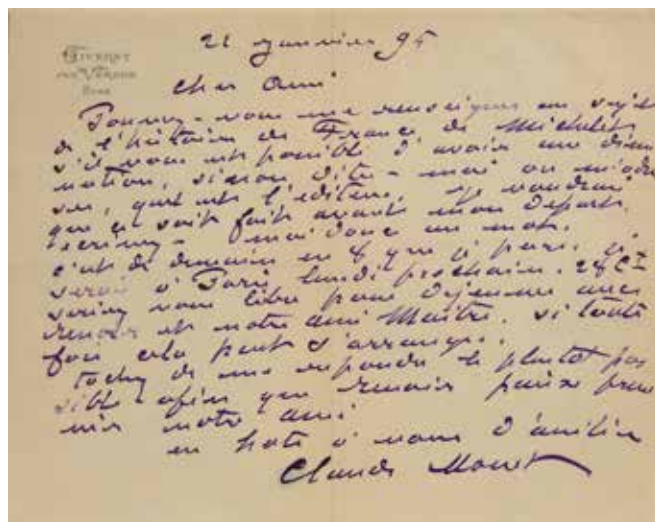 GIVERNY
PAR VERNON
EURE
21 janvier 95
Cher Ami
Pouvez-vous me renseigner au sujet
de l'histoire de France de Michelet
s'il vous est possible d'avoir une dimi
nution, sinon dites-moi où m'adres
ser, quel est l'éditeur. je voudrai
que ce soit fait avant mon départ.
écrivez-moi donc un mot.
c'est de demain en 8 que je pars. je
serai à Paris lundi prochain. 28 Ct
seriez vous libre pour déjeuner avec
renoir et notre ami Maître. si toute
fois cela peut s'arranger.
tachez de me répondre le plutot pos
sible afin que renoir puisse preve
nir notre ami
en hate à vous d'amitié
Claude Monet